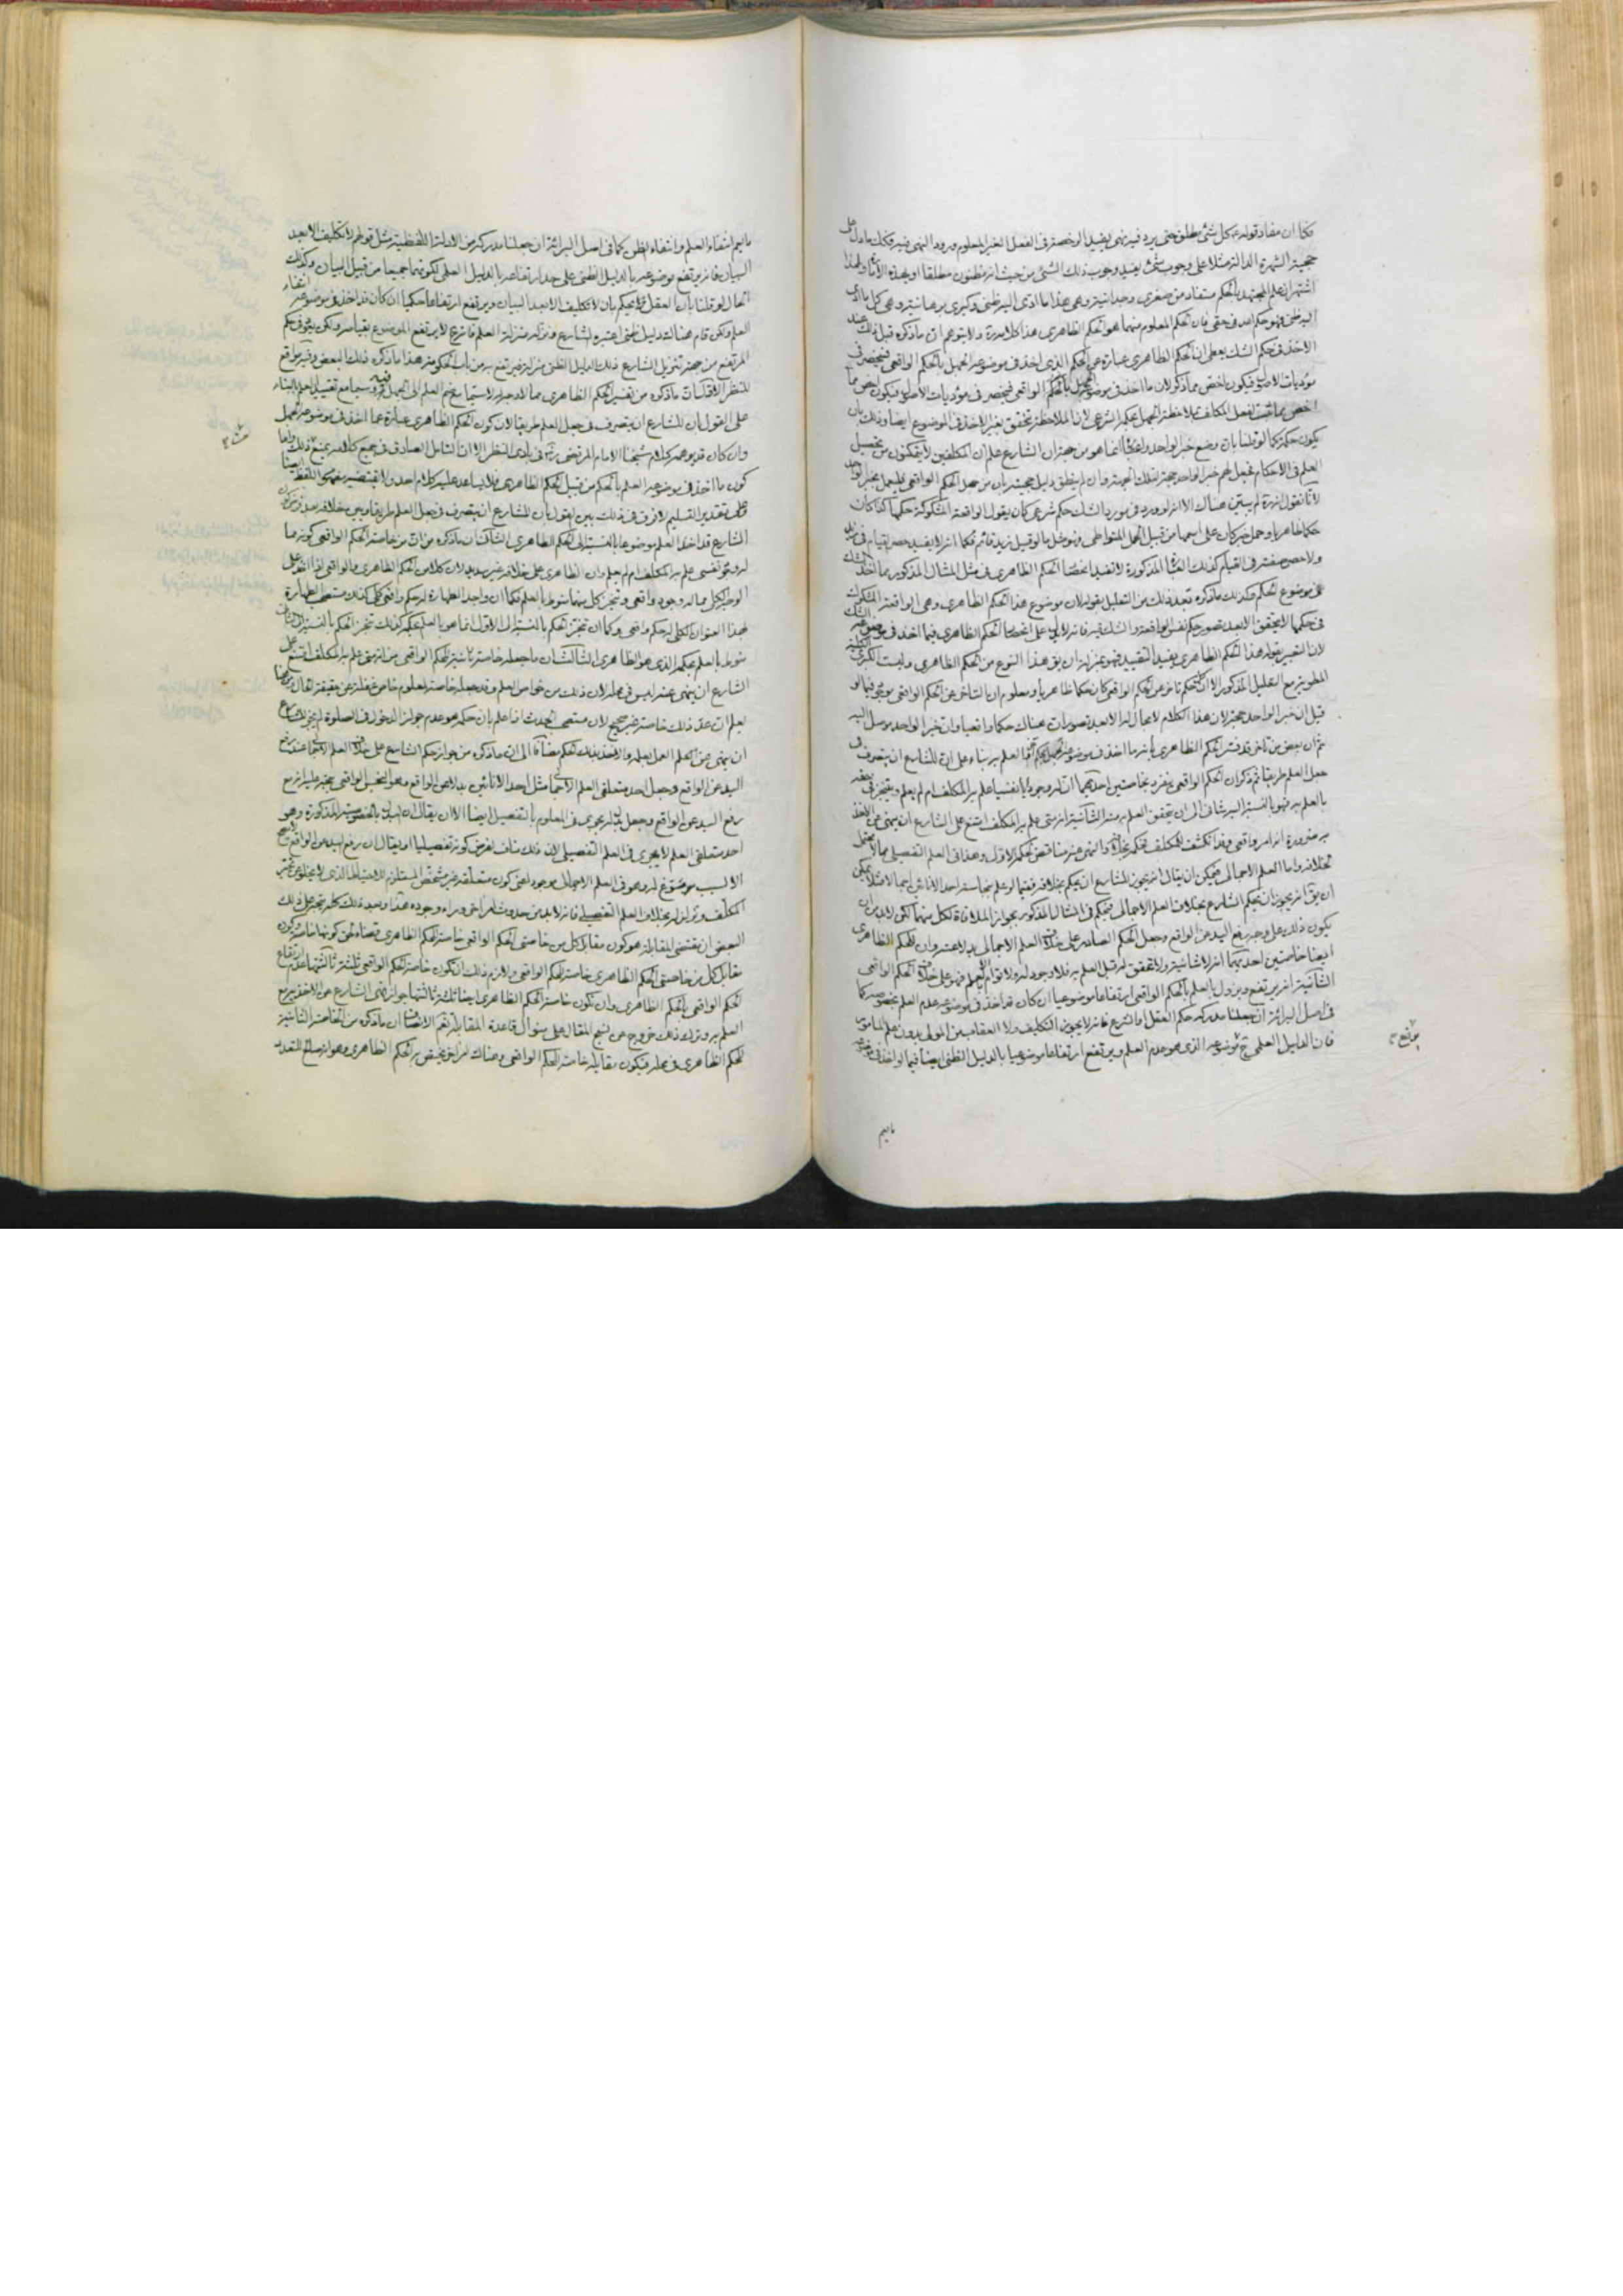 فكما ان مفاد قوله ع كل شئ مطلق حتى يرد فيه نهى يفيد الرخصة فى الفعل الغير المعلوم ورود النهى فيه فكك ما دل على
حجية الشهرة الدالة مثلا على وجوب شئ يفيد وجوب ذلك الشئ من حيث انه مظنون مطلقا او بهذه الأمارة ولهذا
اشتهر ان علم المجتهد بالحكم مستفاد من صغرى وجدانية وهى هذا ما ادى اليه ظنى وكبرى برهانية وهى كل ما ادى
اليه ظنى فهو حكم الله فى حقى فان الحكم المعلوم منهما هو الحكم الظاهرى هذا كلامه ولا يتوهم ان ما ذكره قبل ذلك عند
الاخذ فى حكم الشك يعطى ان الحكم الظاهرى عبارة عن الحكم الذى اخذ فى موضوعه الجهل بالحكم الواقعى فينحصر فى
مؤديات الاصول فيكون اخص مما ذكر لان ما اخذ فى موضوعه الجهل بالحكم الواقعى فينحصر فى مؤديات الأصول فيكون اخص مما
اخص مما ثبت لفعل المكلف بملاحظة الجهل بحكمه الشرعى لان الملاحظة تتحقق بغير الاخذ فى الموضوع ايضا وذلك بان
يكون حكمة كما لو قلنا بان وضع خبر الواحد انما هو من جهة ان الشارع علم ان المكلفين لا يتمكنون من تحصيل
العلم فى الاحكام فجعل لهم خبر الواحد حجة لتلك الجهة وان لم ينطق دليل حجيته بأن من جهل الحكم الواقعى فليعمل بخبر الواحد
لأنا نقول انه لم يبين هناك الا انه لو ورد فى مورد الشك حكم شرعى كان يقول الواقعة المشكوكة حكمها كذا كان
حكما ظاهريا وحمل خبر كان على اسمها من قبيل الحمل المتواطى ونحو مثل ما لو قيل زيد قائم فكما انه لا يفيد حصر القيام فى زيد
ولا حصر صفته فى القيام كذلك العبارة المذكورة لا تفيد انحصار الحكم الظاهرى فى مثل المثال المذكور مما اخذ الشك
فى موضوع الحكم وكذلك ما ذكره بعد ذلك من التعليل بقوله لان موضوع هذا الحكم الظاهرى وهى الواقعة المشكوك
فى حكمها لا يتحقق الا بعد تصور حكم نفس الواقعة والشك فيه فانه لا يدل على انحصار الحكم الظاهرى فيما اخذ فى موضوعه الشك
لان التعبير بقوله هذا الحكم الظاهرى يفيد التقييد فهو بمنزلة ان يق هذا النوع من الحكم الظاهرى وليست الكبرى الكلية
المطوية مع التعليل المذكور الا ان كل حكم تأخر عن الحكم الواقعى كان حكما ظاهريا ومعلوم ان التأخر عن الحكم الواقعى موجود فيما لو
قيل ان خبر الواحد حجة لان هذا الكلام لا مجال له الا بعد تصور ان هناك حكما واقعيا وان خبر الواحد موصل اليه
ثم ان بعض من تأخر قد فسر الحكم الظاهرى بأنه ما اخذ فى موضوعه الجهل بالحكم او العلم به بناء على ان للشارع ان يتصرف فى
جعل العلم طريقا ثم ذكر ان الحكم الواقعى ينفرد بخاصتين احديهما ان له وجودا نفسيا علم به المكلف ام لم يعلم ويتنجز فى حقه
بالعلم به فهو بالنسبة اليه شانى الى ان يتحقق العلم به منه الثانية انه متى علم به المكلف امتنع على الشارع ان ينهى عن الاخذ
به ضرورة انه امر واقعى وقد انكشف للمكلف فحكمه بخلافه والنهى عنه مناقض لحكمه الاول وهذا فى العلم التفصيلى مما لا يحتمل
خلافه واما العلم الاجمالى فيمكن ان يقال انه يجوز للشارع ان يحكم بخلافه ففيما لو علم بنجاسة احد الانائين اجمالا مثلا يمكن
ان يق انه يجوز ان يحكم الشارع بخلاف العلم الاجمالى فيحكم فى المثال المذكور بجواز الملاقاة لكل منهما لكن لا بد ان
يكون ذلك على وجه رفع اليد عن الواقع وجعل الحكم الصادر على خلاف العلم الاجمالى بدلا عنه وان للحكم الظاهرى
ايضا خاصتين احديهما انه لا شانية ولا تحقق له قبل العلم به فلا وجود له ولا قوام الا بالعلم فهو على خلاف الحكم الواقعى
الثانية انه يرتفع ويزول بالعلم بالحكم الواقعى ارتفاعا موضوعيا ان كان قد اخذ فى موضوعه عدم العلم بخصوصه كما
فى اصل البرائة ان جعلنا مدركه حكم العقل او الشرع فانه لا يجوز التكليف ولا العقاب من المولى بدون علم المأمور
فان الدليل العلمى يرفع موضوعه الذى هو عدم العلم ويرتفع ارتفاعا موضوعيا بالدليل الظنى ايضا فيما لو اخذ فى موضوعه
ما يعم
ما يعم انتفاء العلم وانتفاء الظن كما فى اصل البرائة ان جعلنا مدركه من الادلة اللفظية مثل قولهم لا تكليف الا بعد
البيان فانه يرتفع موضوعه بالدليل الظنى على حد ارتفاعه بالدليل العلمى لكونهما جميعا من قبيل البيان وكذلك
الحال لو قلنا بأن العقل يحكم بان لا تكليف الا بعد البيان ويرتفع ارتفاعا حكميا ان كان قد اخذ فى موضوعه انتفاء
العلم ولكن قام هناك دليل ظنى اعتبره الشارع ونزله منزلة العلم فانه ح لا يرتفع الموضوع بقيامه ولكن يكون فى حكم
المرتفع من جهة تنزيل الشارع ذلك الدليل الظنى منزلته فيرتفع به من باب الحكومة هذا ما ذكره ذلك البعض وفيه مواقع
للنظر الاول ان ما ذكره من تفسير الحكم الظاهرى مما لا وجه له لا سيما مع ضم العلم الى الجهل فيه وسيما مع تقييد العلم بالبناء
على القول بان للشارع ان يتصرف فى جعل العلم طريقا لان كون الحكم الظاهرى عبارة عما اخذ فى موضوعه الجهل
وان كان قد يوهمه كلام شيخنا الامام المرتضى فى بادى النظر الا ان التأمل الصادق فى جميع كلامه يمنع ذلك واما
كون ما اخذ فى موضوعه العلم بالحكم من قبيل الحكم الظاهرى فلا يساعد عليه كلام احد ولا يقتضيه مفهوم اللفظ ايضا
وعلى تقدير التسليم لا فرق فى ذلك بين القول بأن للشارع ان يتصرف فى جعل العلم طريقا وبين خلافه بعد فرض كون
الشارع قد اخذ العلم موضوعا بالنسبة الى الحكم الظاهرى الثانى ان ما ذكره من ان من خاصة الحكم الواقعى كونه مما
له وجود نفسى علم به المكلف ام لم يعلم وان الظاهرى على خلافه غير سديد لان كلا من الحكم الظاهرى والواقعى
مما له وجود واقعى وتنجز كل منهما منوط بالعلم فكما ان واجد الطهارة له حكم واقعى كلى كذلك مستصحب الطهارة
بهذا العنوان الكلى له حكم واقعى وكما ان تنجز الحكم بالنسبة الى الاول انما هو بالعلم بحكمه كذلك تنجز الحكم بالنسبة الى الثانى
منوط بالعلم بحكمه الذى هو الظاهرى الثالث ان ما جعله خاصة ثانية للحكم الواقعى من انه متى علم به المكلف امتنع على
الشارع ان ينهى عنه ليس فى محله لان ذلك من خواص العلم وقد جعله خاصة المعلوم غفلة عن حقيقة الحال
يعلم ان عد ذلك خاصة غير صحيح لان مستصحب الحدث اذا علم بان حكمه هو عدم جواز الدخول فى الصلوة لم يجز للشارع
ان ينهى عن العمل بعلمه والاخذ بذلك الحكم مضافا الى ان ما ذكره من جواز حكم الشارع على خلاف العلم الاجمالى عند رفع
اليد عن الواقع وجعل احد متعلقى العلم الاجمالى مثل احد الانائين بدلا عن الواقع وهو النجس الواقعى يتجه عليه انه مع
رفع اليد عن الواقع وجعل بدله يجرى فى المعلوم بالتفصيل ايضا الا ان يقال ان البدل بالخصوصية المذكورة وهو
احد متعلقى العلم لا يجرى فى العلم التفصيلى لان ذلك مناف لفرض كونه تفصيليا او يقال ان رفع اليد عن الواقع لا يصح
الا لسبب مسوغ له وهو فى العلم الاجمالى موجود اعنى كون متعلقه غير مشخص المستلزم للاحتياط الذى لا يخلو عن
المكلف وتزلزله بخلاف العلم التفصيلى فانه لا بد من حدوث امر اخر وراء وجوده هذا وبعد ذلك كله يتجه على ذلك
البعض ان مقتضى المقابلة هو كون مقابل كل من خاصتى الحكم الواقعى خاصة للحكم الظاهرى
مقابل كل من خاصتى الحكم الظاهرى خاصة للحكم الواقعى ولازم ذلك ان تكون خاصة الحكم الواقعى ثلثة ثالثتها عدم ارتفاع
الحكم الواقعى بالحكم الظاهرى وان تكون خاصة الحكم الظاهرى ايضا ثلث ثالثتها جواز نهى الشارع عن الاخذ به مع
العلم به وترك ذلك خروج عن نسج المقال على منوال قاعدة المقابلة ثم الانصاف ان ما ذكره من الخاصة الثانية
للحكم الظاهرى فى محله فيكون مقابله خاصة للحكم الواقعى وهناك امر اخر يختص به الحكم الظاهرى وهو انه صالح للتعدد